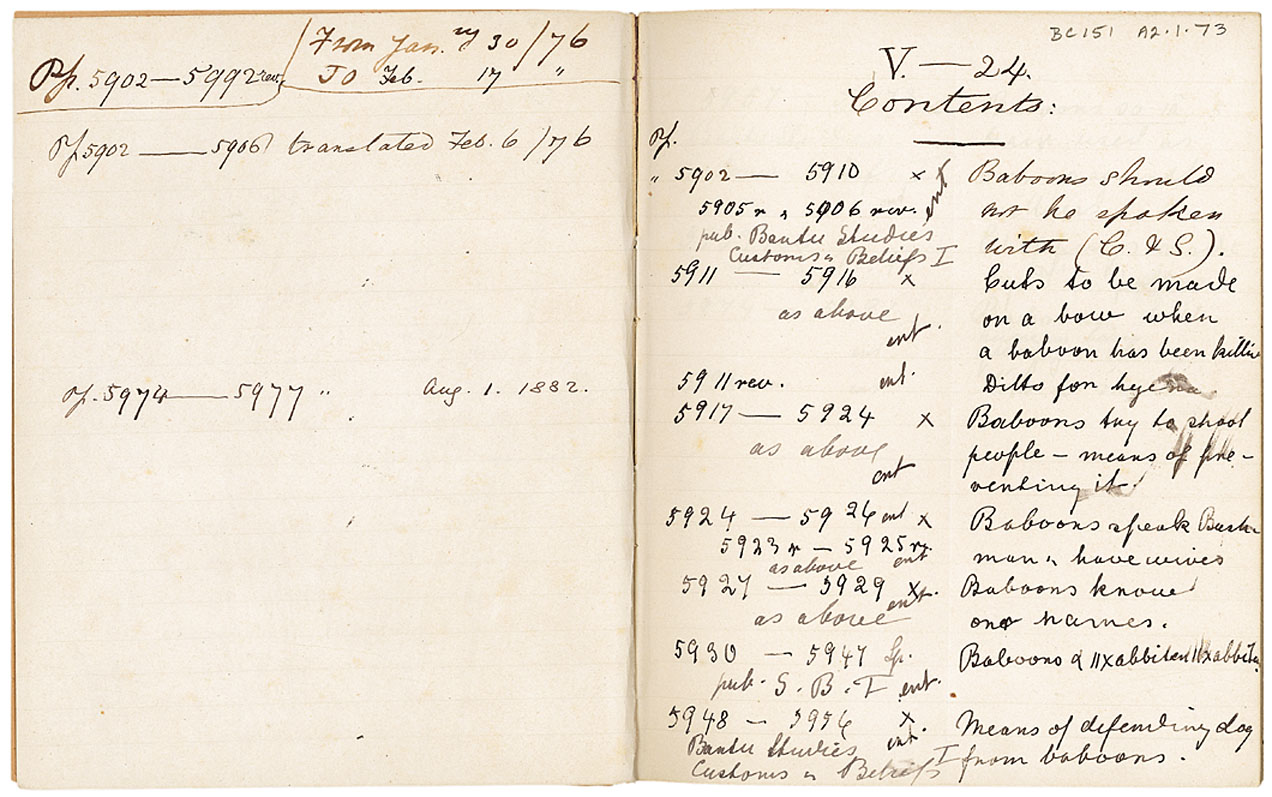 From Jan.ry 30/76
Pp. 5902—5992 rev. To Feb. 17 "
Pp 5902 — 5906 translated Feb. 6/76
Pp. 5974 — 5977 " Aug. 1. 1882.
BC151 A2.1.73
V. — 24.
Contents:
Pp.
" 5902 — 5910 x ent Baboons should
5905 r , 5906 rev. not be spoken
pub. Bantu Studies
Customs & Beliefs I with (C. & S.).
5911 — 5916 x Cuts to be made
as above on a bow when
ent. a baboon has been killin
5911 rev. ent. Ditto for hyena
5917 — 5924 x Baboons try to shoot
as above people – means of pre-
ent venting it.
5924 — 5926 ent x Baboons speak Bush-
5923 r — 5925 r. man & have wives
as above ent
5927 — 5929 x. Baboons know
as above ent. one names.
5930 — 5947 Sp. Baboons & ||xabbiten ||xabbiten
pub. S. B. F ent.
5948 — 5956 x Means of defending dog
Bantu Studies ent. from baboons.
Customs & Beliefs I